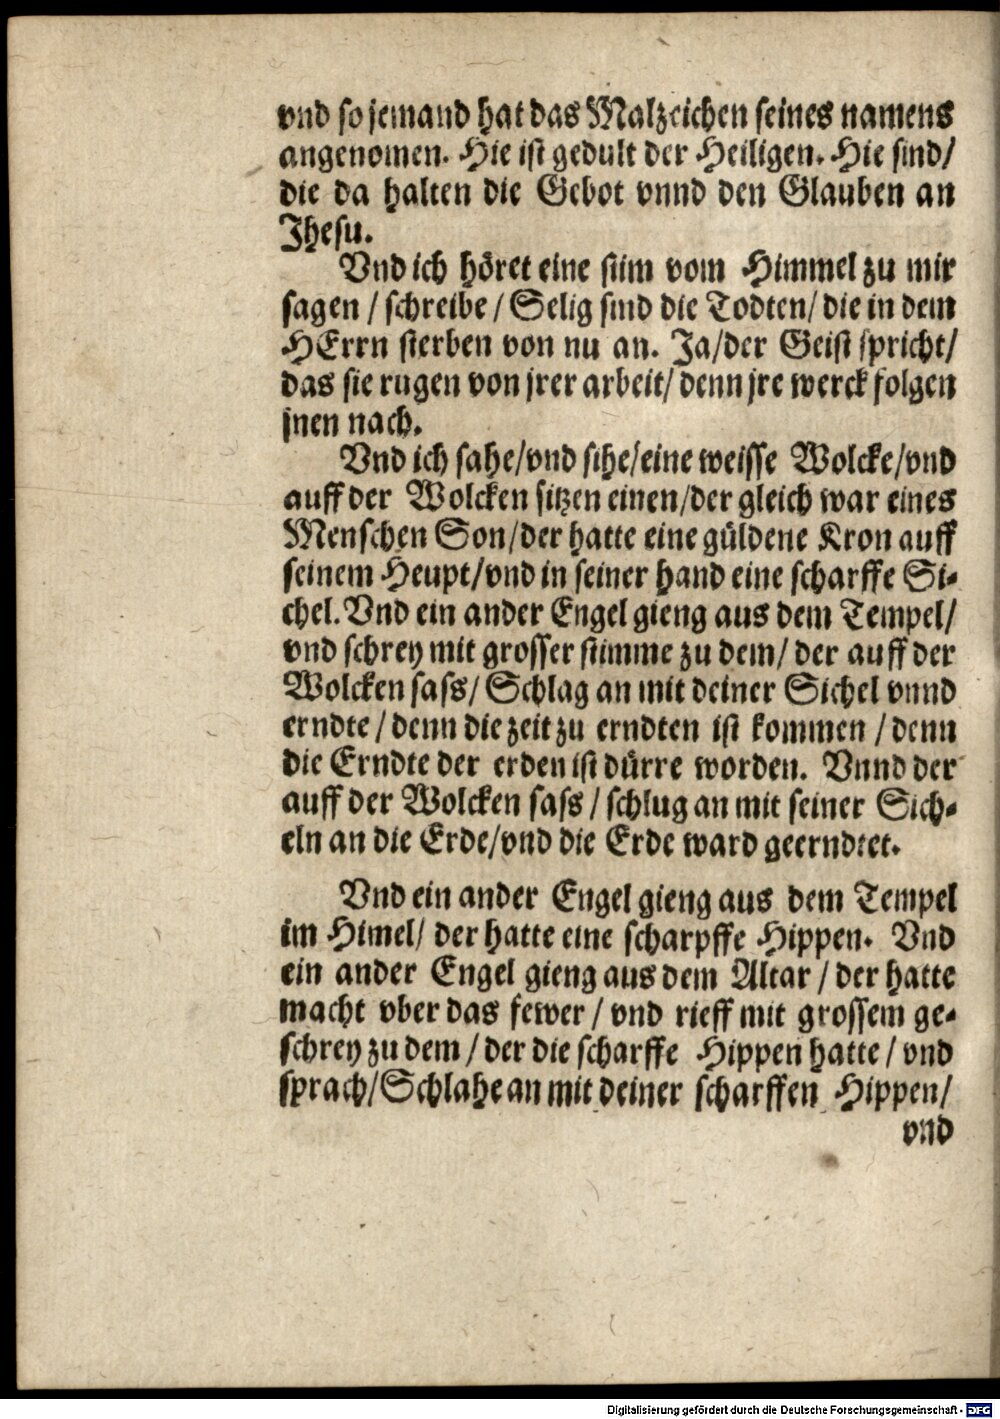 vnd so jemand hat das Malzeichen seines namens
angenomen. Hie ist gedult der Heiligen. Hie sind/
die da halten die Gebot vnnd den Glauben an
Jhesu.
Vnd ich höret eine stim vom Himmel zu mir
sagen / schreibe / Selig sind die Todten/ die in dem
HErrn sterben von nu an. Ja/der Geist spricht/
das sie rugen von jrer arbeit/ denn jre werck folgen
jnen nach.
Vnd ich sahe/vnd sihe/eine weisse Wolcke/vnd
auff der Wolcken sitzen einen/der gleich war eines
Menschen Son/der hatte eine güldene Kron auff
seinem Heupt/vnd in seiner hand eine scharffe Si-
chel. Vnd ein ander Engel gieng aus dem Tempel/
vnd schrey mit grosser stimme zu dem/ der auff der
Wolcken sass/ Schlag an mit deiner Sichel vnnd
erndte / denn die zeit zu erndten ist kommen / denn
die Erndte der erden ist dürre worden. Vnnd der
auff der Wolcken sass / schlug an mit seiner Sich-
eln an die Erde/vnd die Erde ward geerndtet.
Vnd ein ander Engel gieng aus dem Tempel
im Himel/ der hatte eine scharpffe Hippen. Vnd
ein ander Engel gieng aus dem Altar / der hatte
macht vber das fewer / vnd rieff mit grossem ge-
schrey zu dem / der die scharffe Hippen hatte / vnd
sprach/Schlahe an mit deiner scharffen Hippen/
vnd
Digitalisierung gefördert durch die Deutsche Forschungsgemeinschaft - DFG